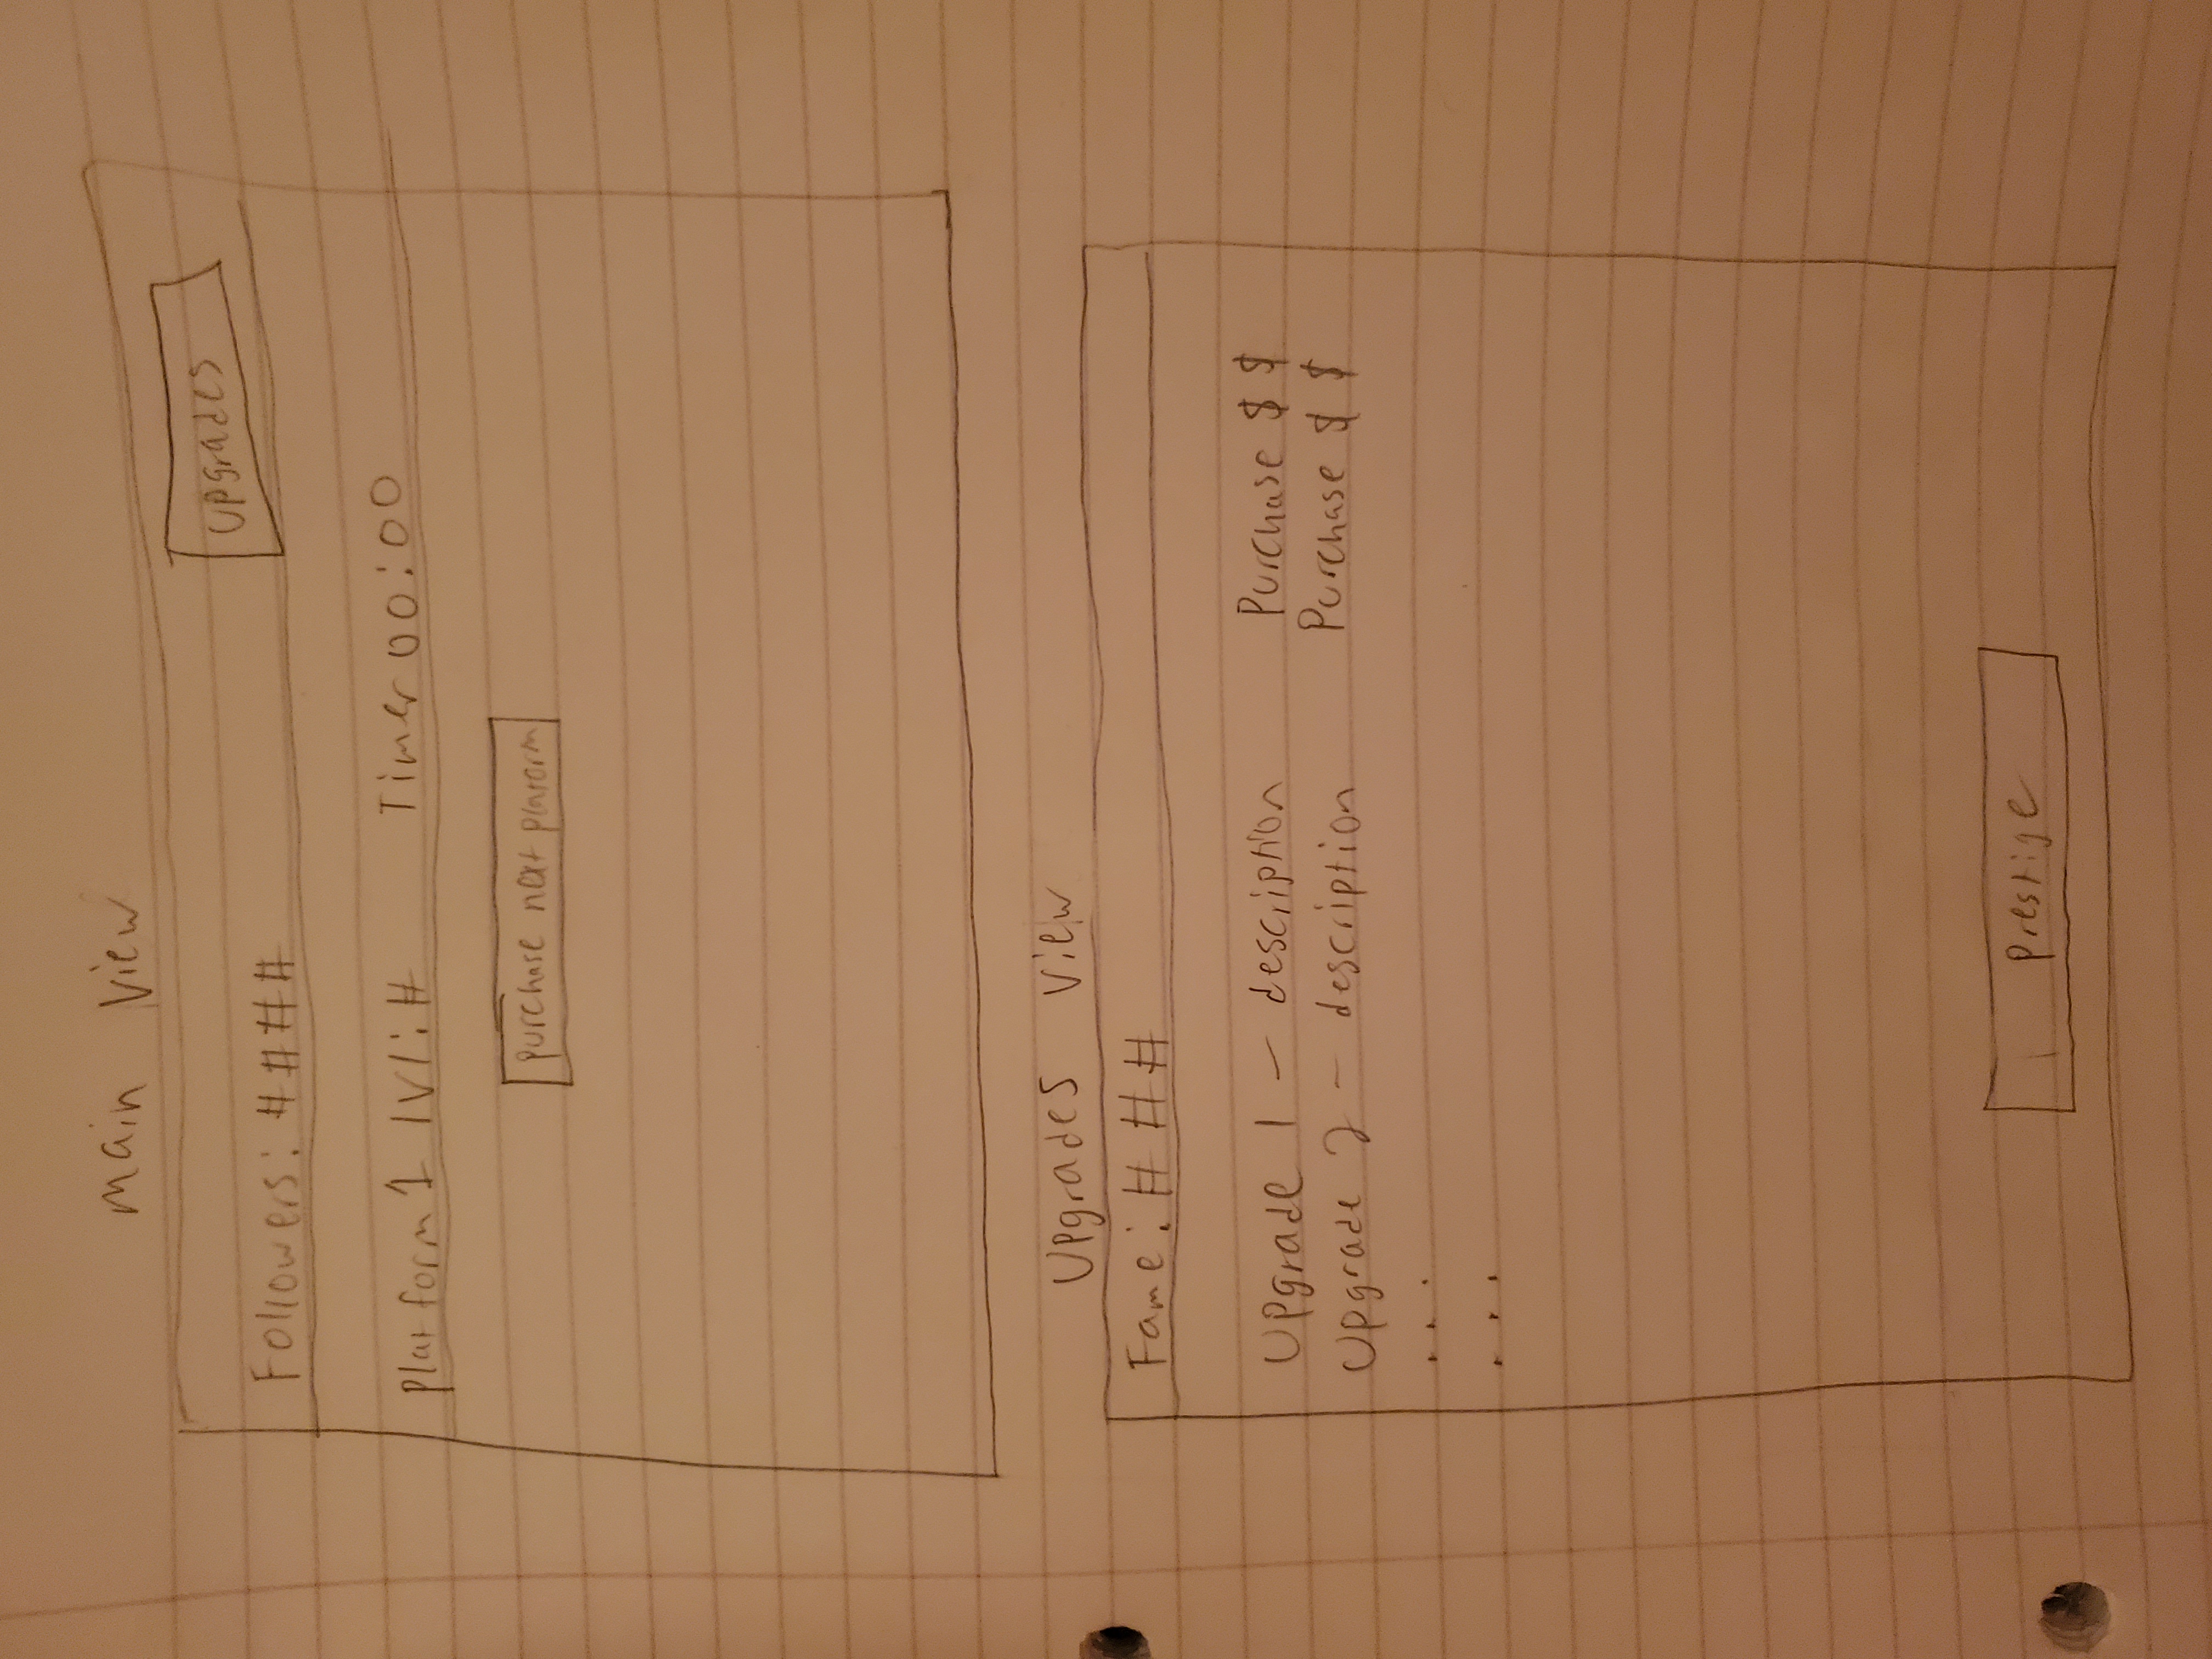 Main View
Upgrades
Followers: ####
Platform 1 lvl: # Timer 00:00
purchase next platorm
Upgrades View
Fame: ###
Upgrade 1 - description Purchase $$
Upgrade 2 - description Purchase $$
...
...
Prestige